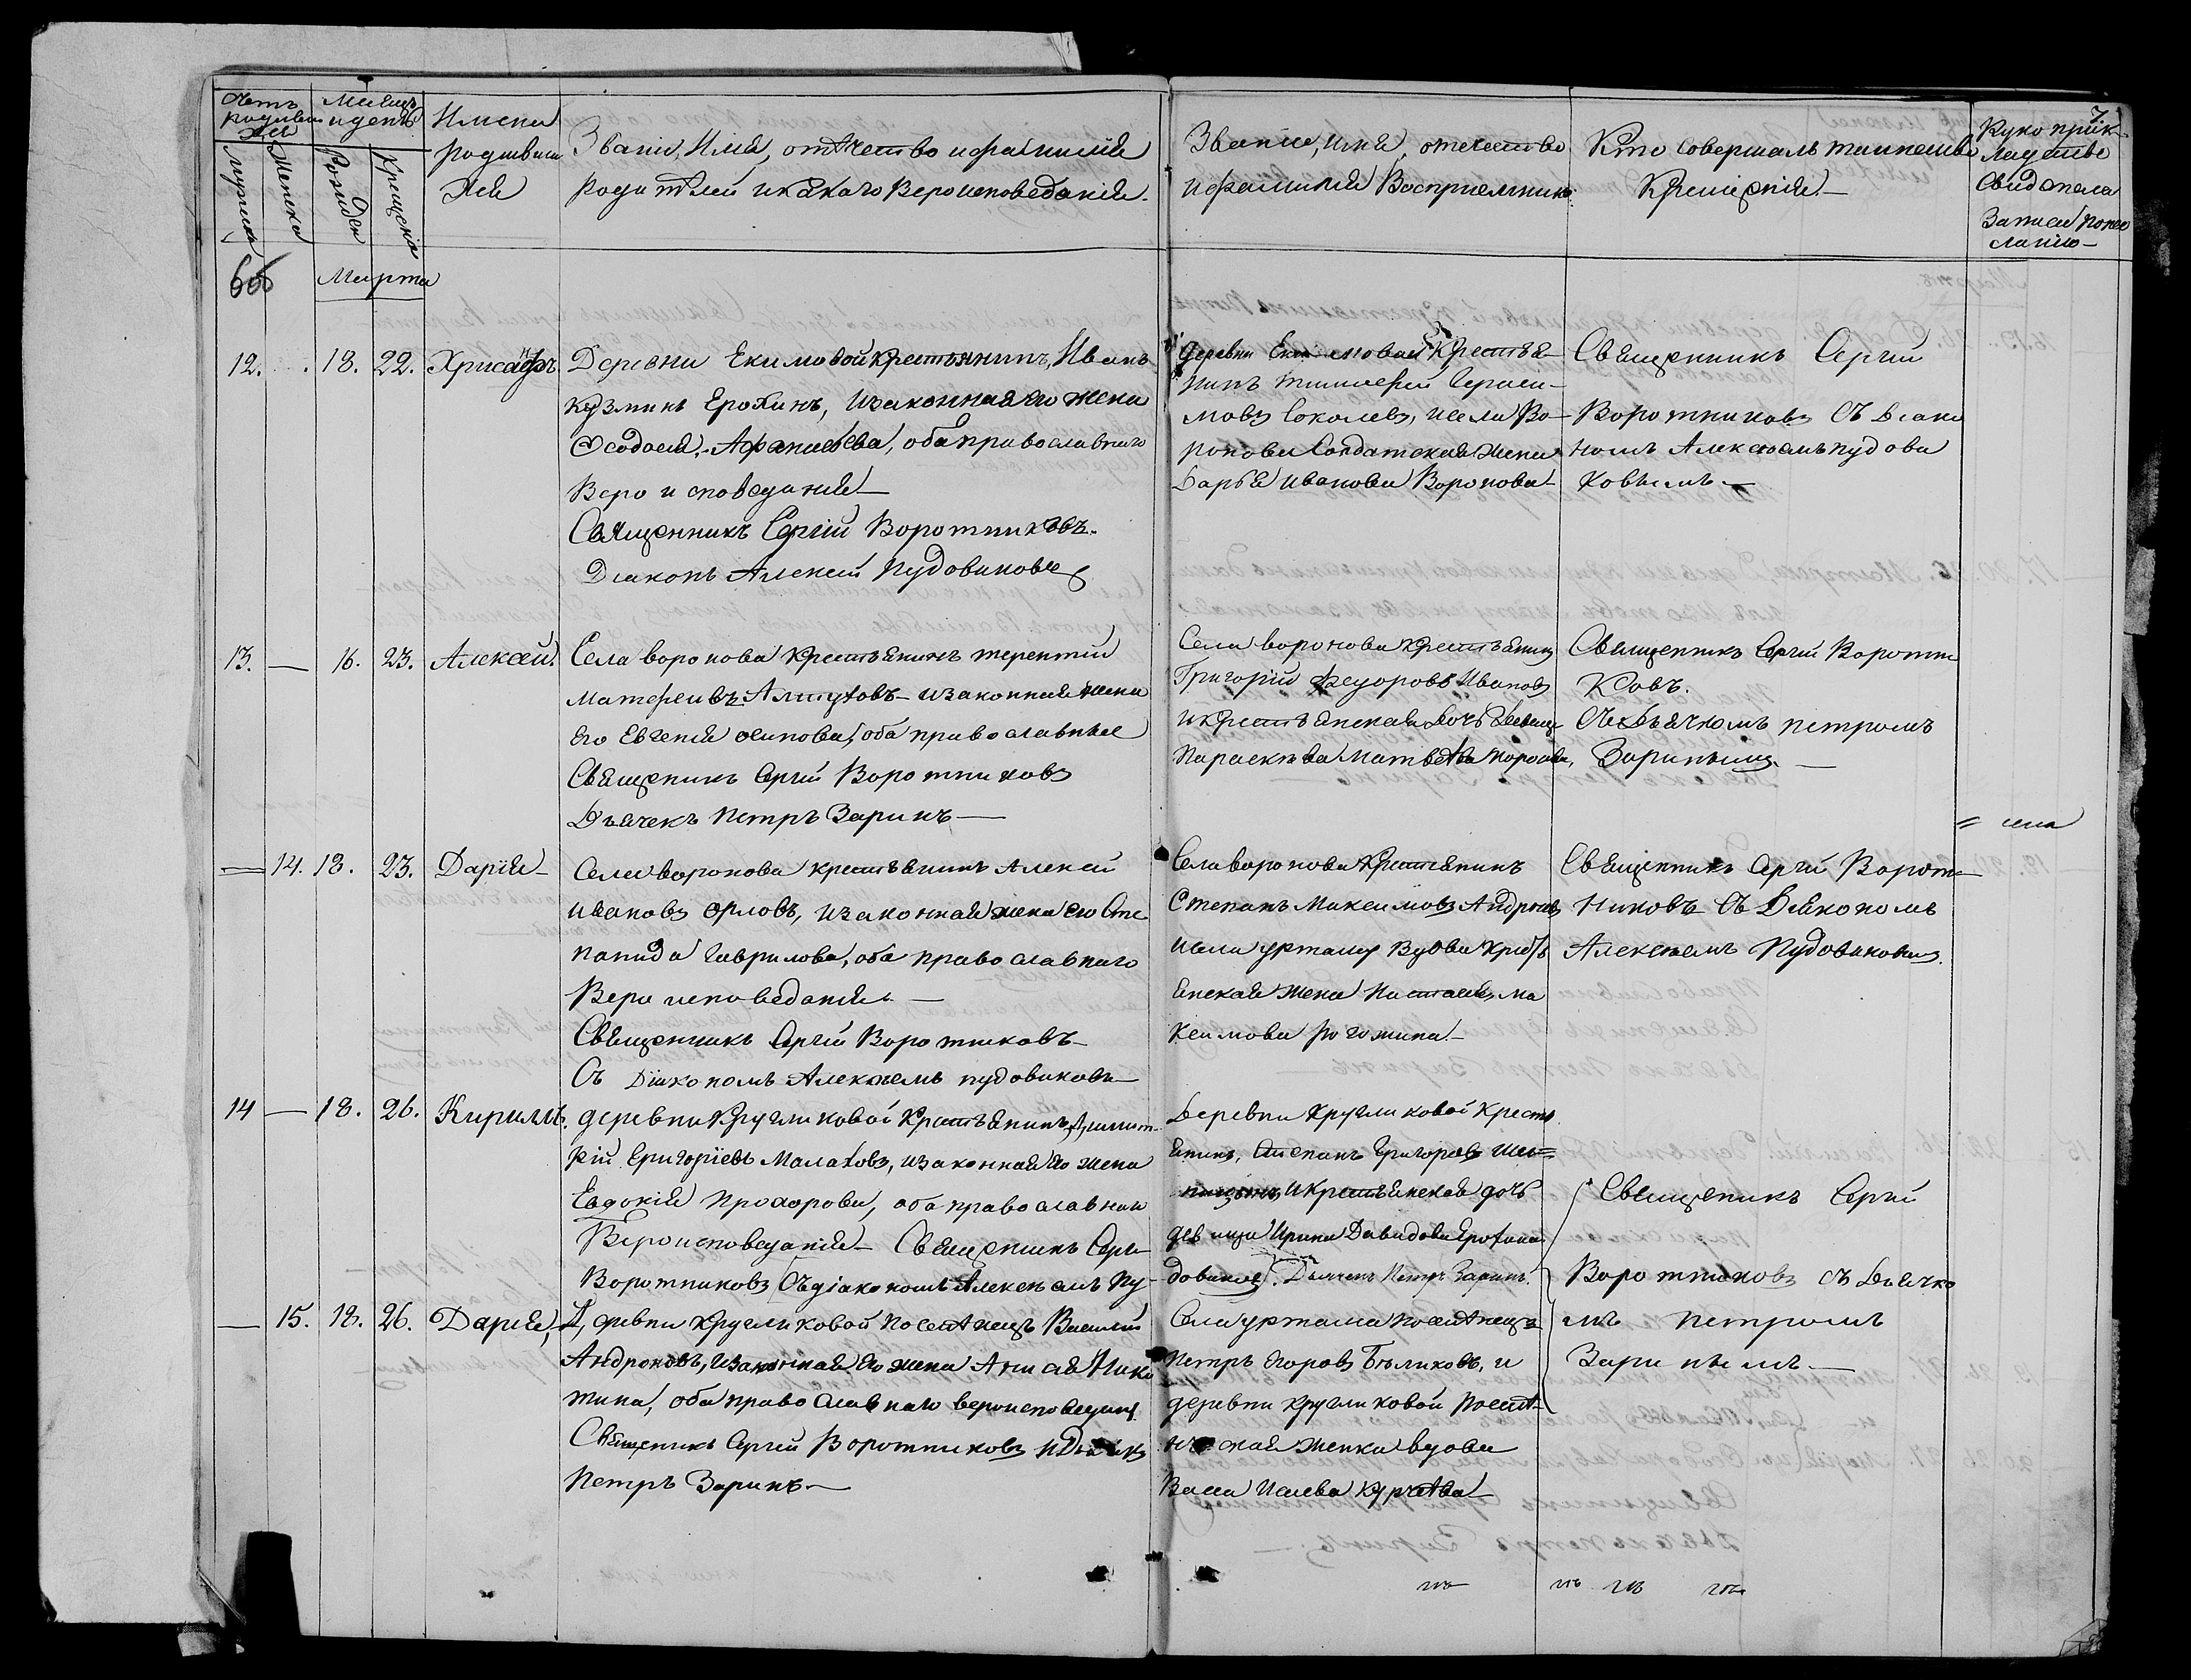 Счетъ родившихся
Мужеска
Женска
Месяцъ и день
Рожден
Крещенія
Имена родившихся
Званіе, Имя, отчество и фамилія
родителей и какаго Вероисповеданія.
Званіе, имя, отечество
и фамилія Восприемников
Кто совершалъ таинство
Крещенія. —
7
Рукоприкладство
Свидетеля
Записи по желанію —
Марта
12. 18. 22. Хрисанфъ
Деревни Екимовой крестьянинъ, Иванъ
Кузминъ Ерохинъ, и законная его жена
Феодосія Афанасьева, оба православнаго
Вероисповеданія —
Священникъ Сергій Воротниковъ.
Діаконъ Алексей Пудовиковъ
Деревни Екимовой крестья-
нинъ тимофей Гераси-
мовъ Соколовъ, и села Во-
ронова Солдатская жена
Дарья Иванова Воронова
Священникъ Сергій
Воротниковъ Съ Діако
номъ Алексеемъ пудови
ковымъ —
13. — 16. 23. Алексей.
Села воронова крестьянинъ терентій
Матфеивъ и законная жена
его Евгенія осипова, оба православные
Священикъ Сергій Воротниковъ
Дьячекъ Петръ Заринъ —
Села воронова крестьянинъ
Григорій Федоровъ Ивановъ
и крестьянская дочь девица
Параскева Матвеева
Священникъ Сергій Воротни
ковъ.
Съ Дьячкомъ петромъ
Заринымъ —
— 14. 18. 23. Дарія —
Села воронова крестьянинъ Алексей
Ивановъ орловъ, и законная жена его Сте
панида Гаврилова, оба православнаго
Вероисповеданія. —
Священникъ Сергій Воротниковъ —
Съ Діакономъ Алексеемъ пудовиковъ —
Села воронова Крестьянинъ
Степанъ Максимовъ Андроновъ
и села уртама Вдова крест
янская жена Настасья Ма
ксимова рогожина —
Священникъ Сергій Ворот-
никовъ Съ Діякономъ
Алексеемъ Пудовиковым.
14 — 18. 26. Кириллъ.
деревни Кругликовой Крестьянинъ Димит-
рій Григоріевъ Малаховъ, и законная его жена
Евдокія Прохорова, оба православнаго
Вероисповеданія — Священикъ Сергій
Воротниковъ Съ діакономъ Алексеемъ Пу-
довиковъ. Дьячекъ Петръ Заринъ.
Деревни Кругликовой Кресть
янинъ, Степанъ Григоровъ
и крестьянская дочь
девица Ирина Давидова Ерохина
Священикъ Сергій
Воротниковъ съ Дьячко
мъ Петромъ
Заринымъ —
— 15. 18. 26. Дарія,
Деревни Кругликовой Поселенецъ Василій
Андроновъ, и законная его жена Анисия Ники
тина, оба православнаго вероисповедания.
Священикъ Сергий Воротниковъ и Дьячекъ
Петръ Заринъ —
Села уртама поселенецъ
Петръ Егоровъ Беликовъ, и
деревни кругликовой посел-
женка вдова
Васса Исаева